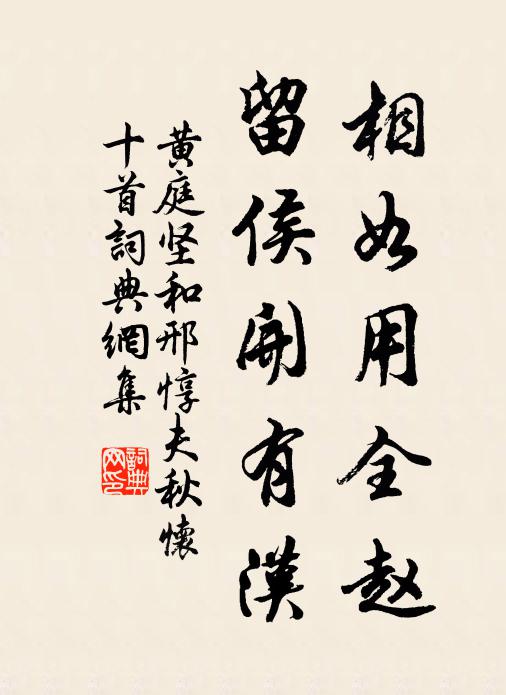 相如用全赵
留侯开有汉
黄庭坚和邢惇夫秋懷
十首詞典網集
詞典
网印